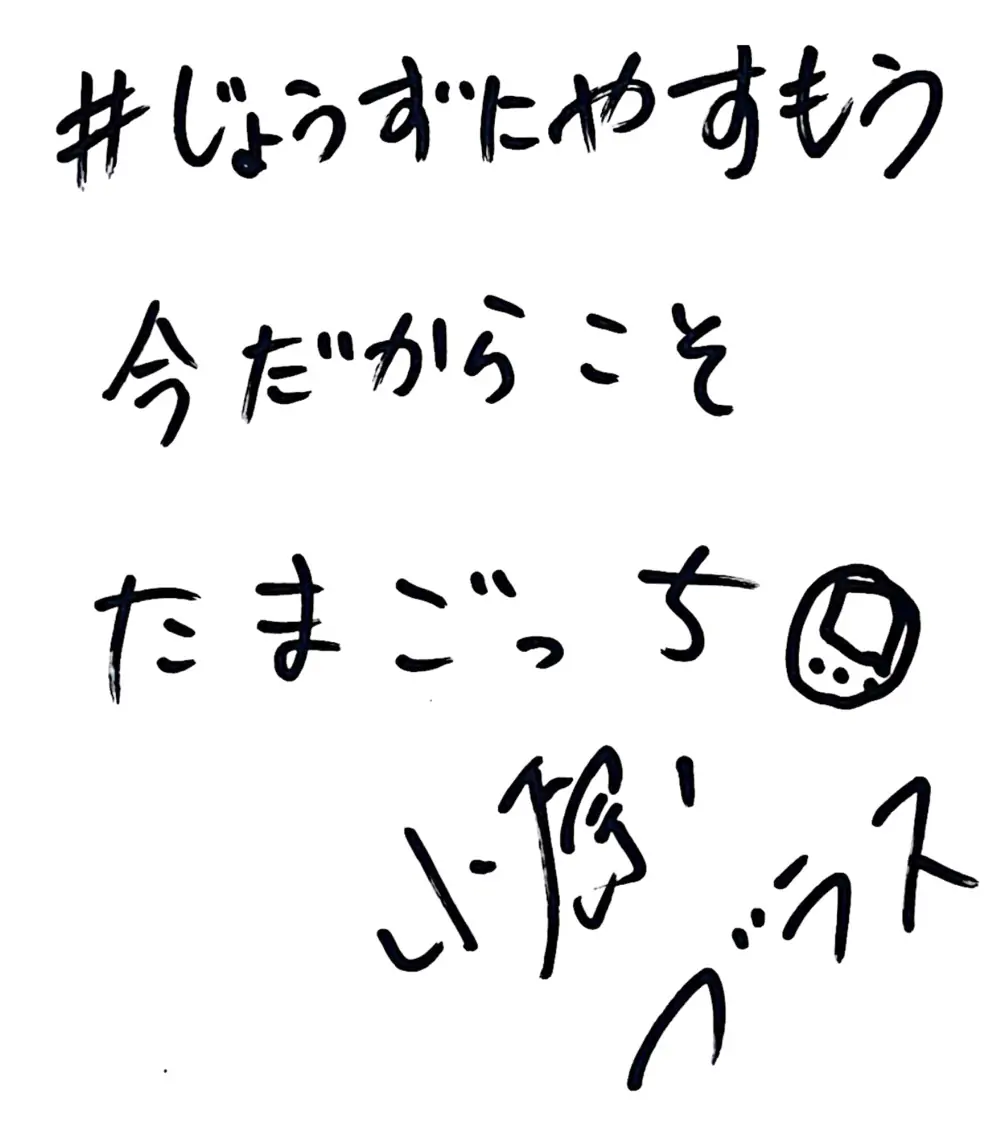 #じょうずにやすもう
今だからこそ
たまごっち
小隐
ベラス